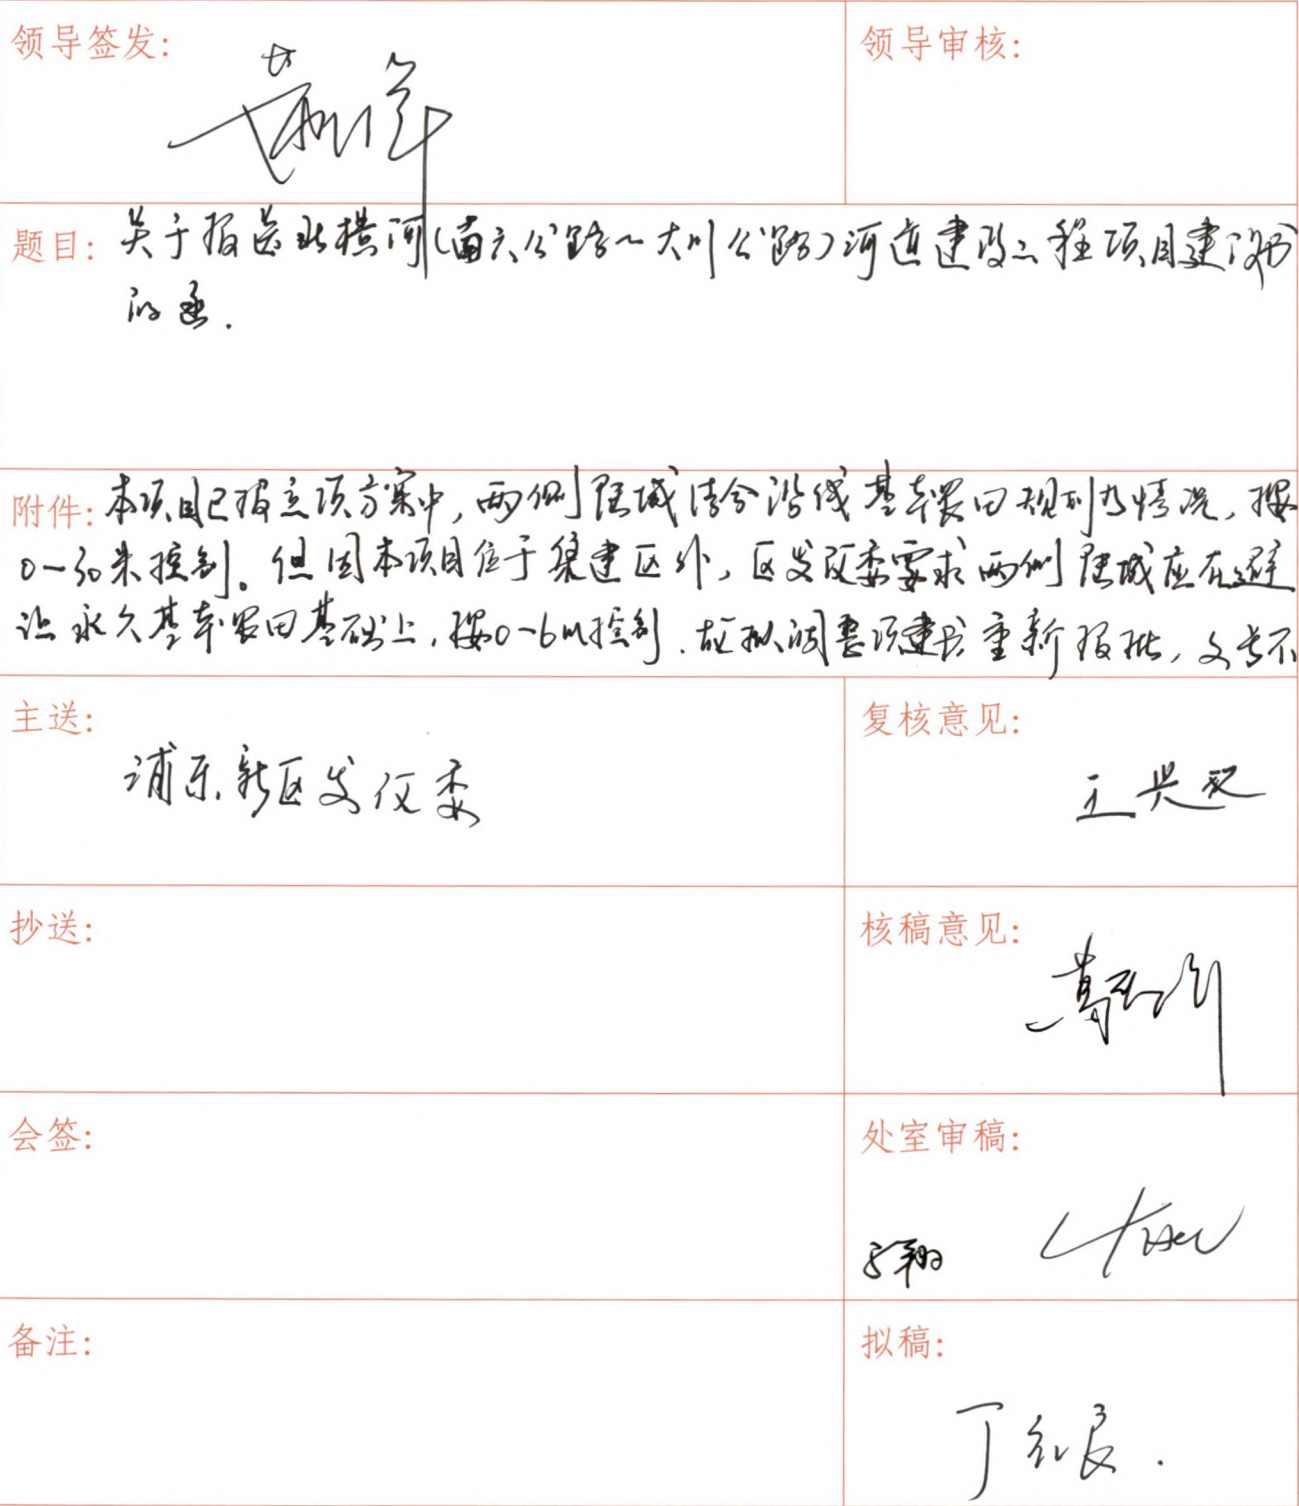 领导签发:
领导审核:
题目: 关于报送北横河(南六公路~大川公路)河道建设工程项目建议书
的函.
附件: 本项目已报立项方案中,两侧陆域结合沿线基本农田规划为情况,按
0-30米控制。但因本项目位于集建区外,区发改委要求两侧陆域应在避
让永久基本农田基础上,按0-6m控制.故拟调整项建书重新报批,文号不
主送:
浦东新区发改委
复核意见:
王兴
抄送:
核稿意见:
会签:
处室审稿:
翔
备注:
拟稿:
丁红良.